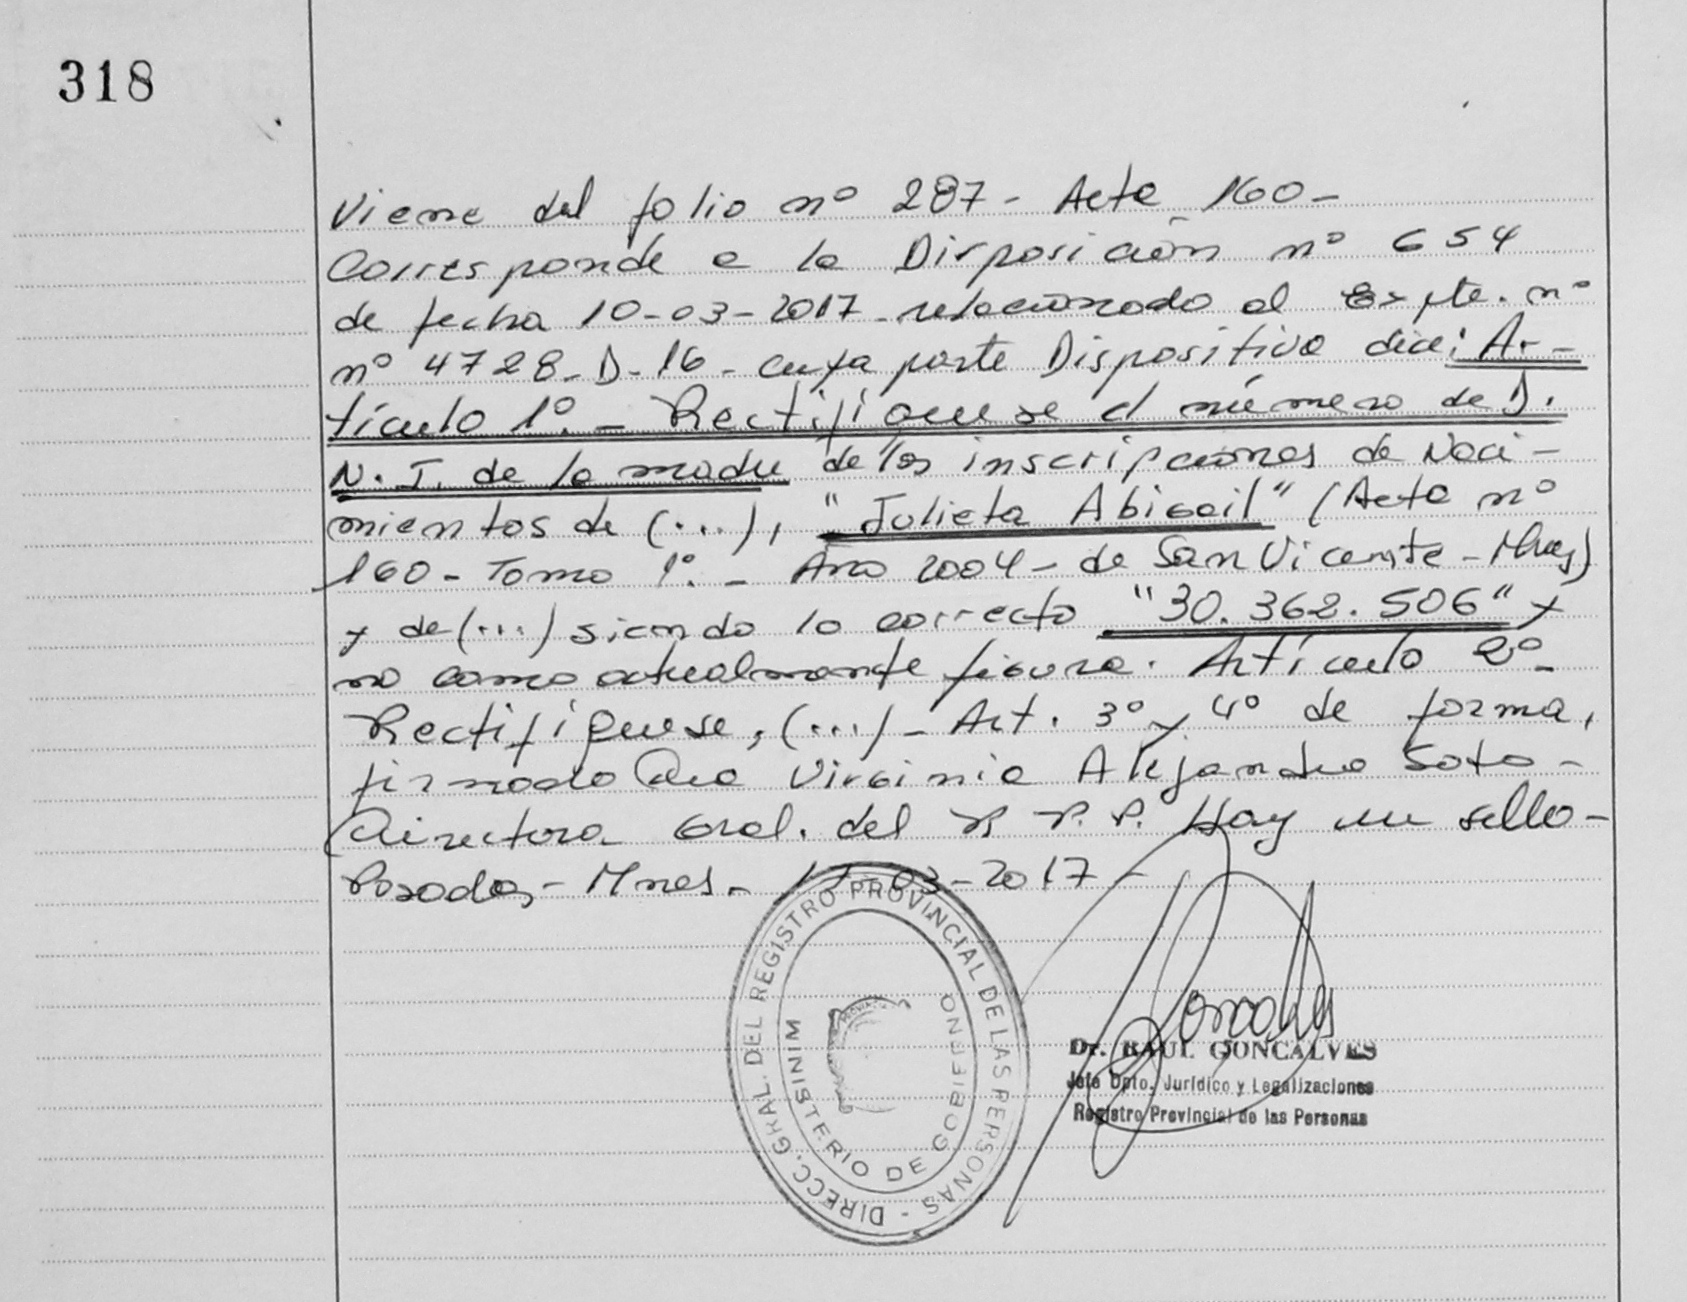 318
Viene del folio nº 287 - Acta 160 -
Corresponde a la Disposición nº 654
de fecha 10-03-2017 - relacionado al Expte. nº
nº 4728-D-16 - cuya parte Dispositiva dice: Ar-
tículo 1º. - Rectifíquese el número de D.
N. I. de la madre de las inscripciones de Naci-
mientos de (...), "Julieta Abigail" (Acta nº
160 - Tomo 1º. - Año 2004 - de San Vicente - Mnes)
y de (...) siendo lo correcto "30.362.506" y
no como actualmente figura. Artículo 2º -
Rectifíquese, (...) - Art. 3º y 4º de forma,
firmado Dra Virginia Alejandra Soto -
Directora Gral. del R. P. P. Hay un sello -
Posadas - Mnes. - -03-2017 -
DIRECC. GRAL. DEL REGISTRO PROVINCIAL DE LAS PERSONAS -
MINISTERIO DE GOBIERNO
Dr. RAUL GONCALVES
Jefe Dpto. Jurídico y Legalizaciones
Registro Provincial de las Personas